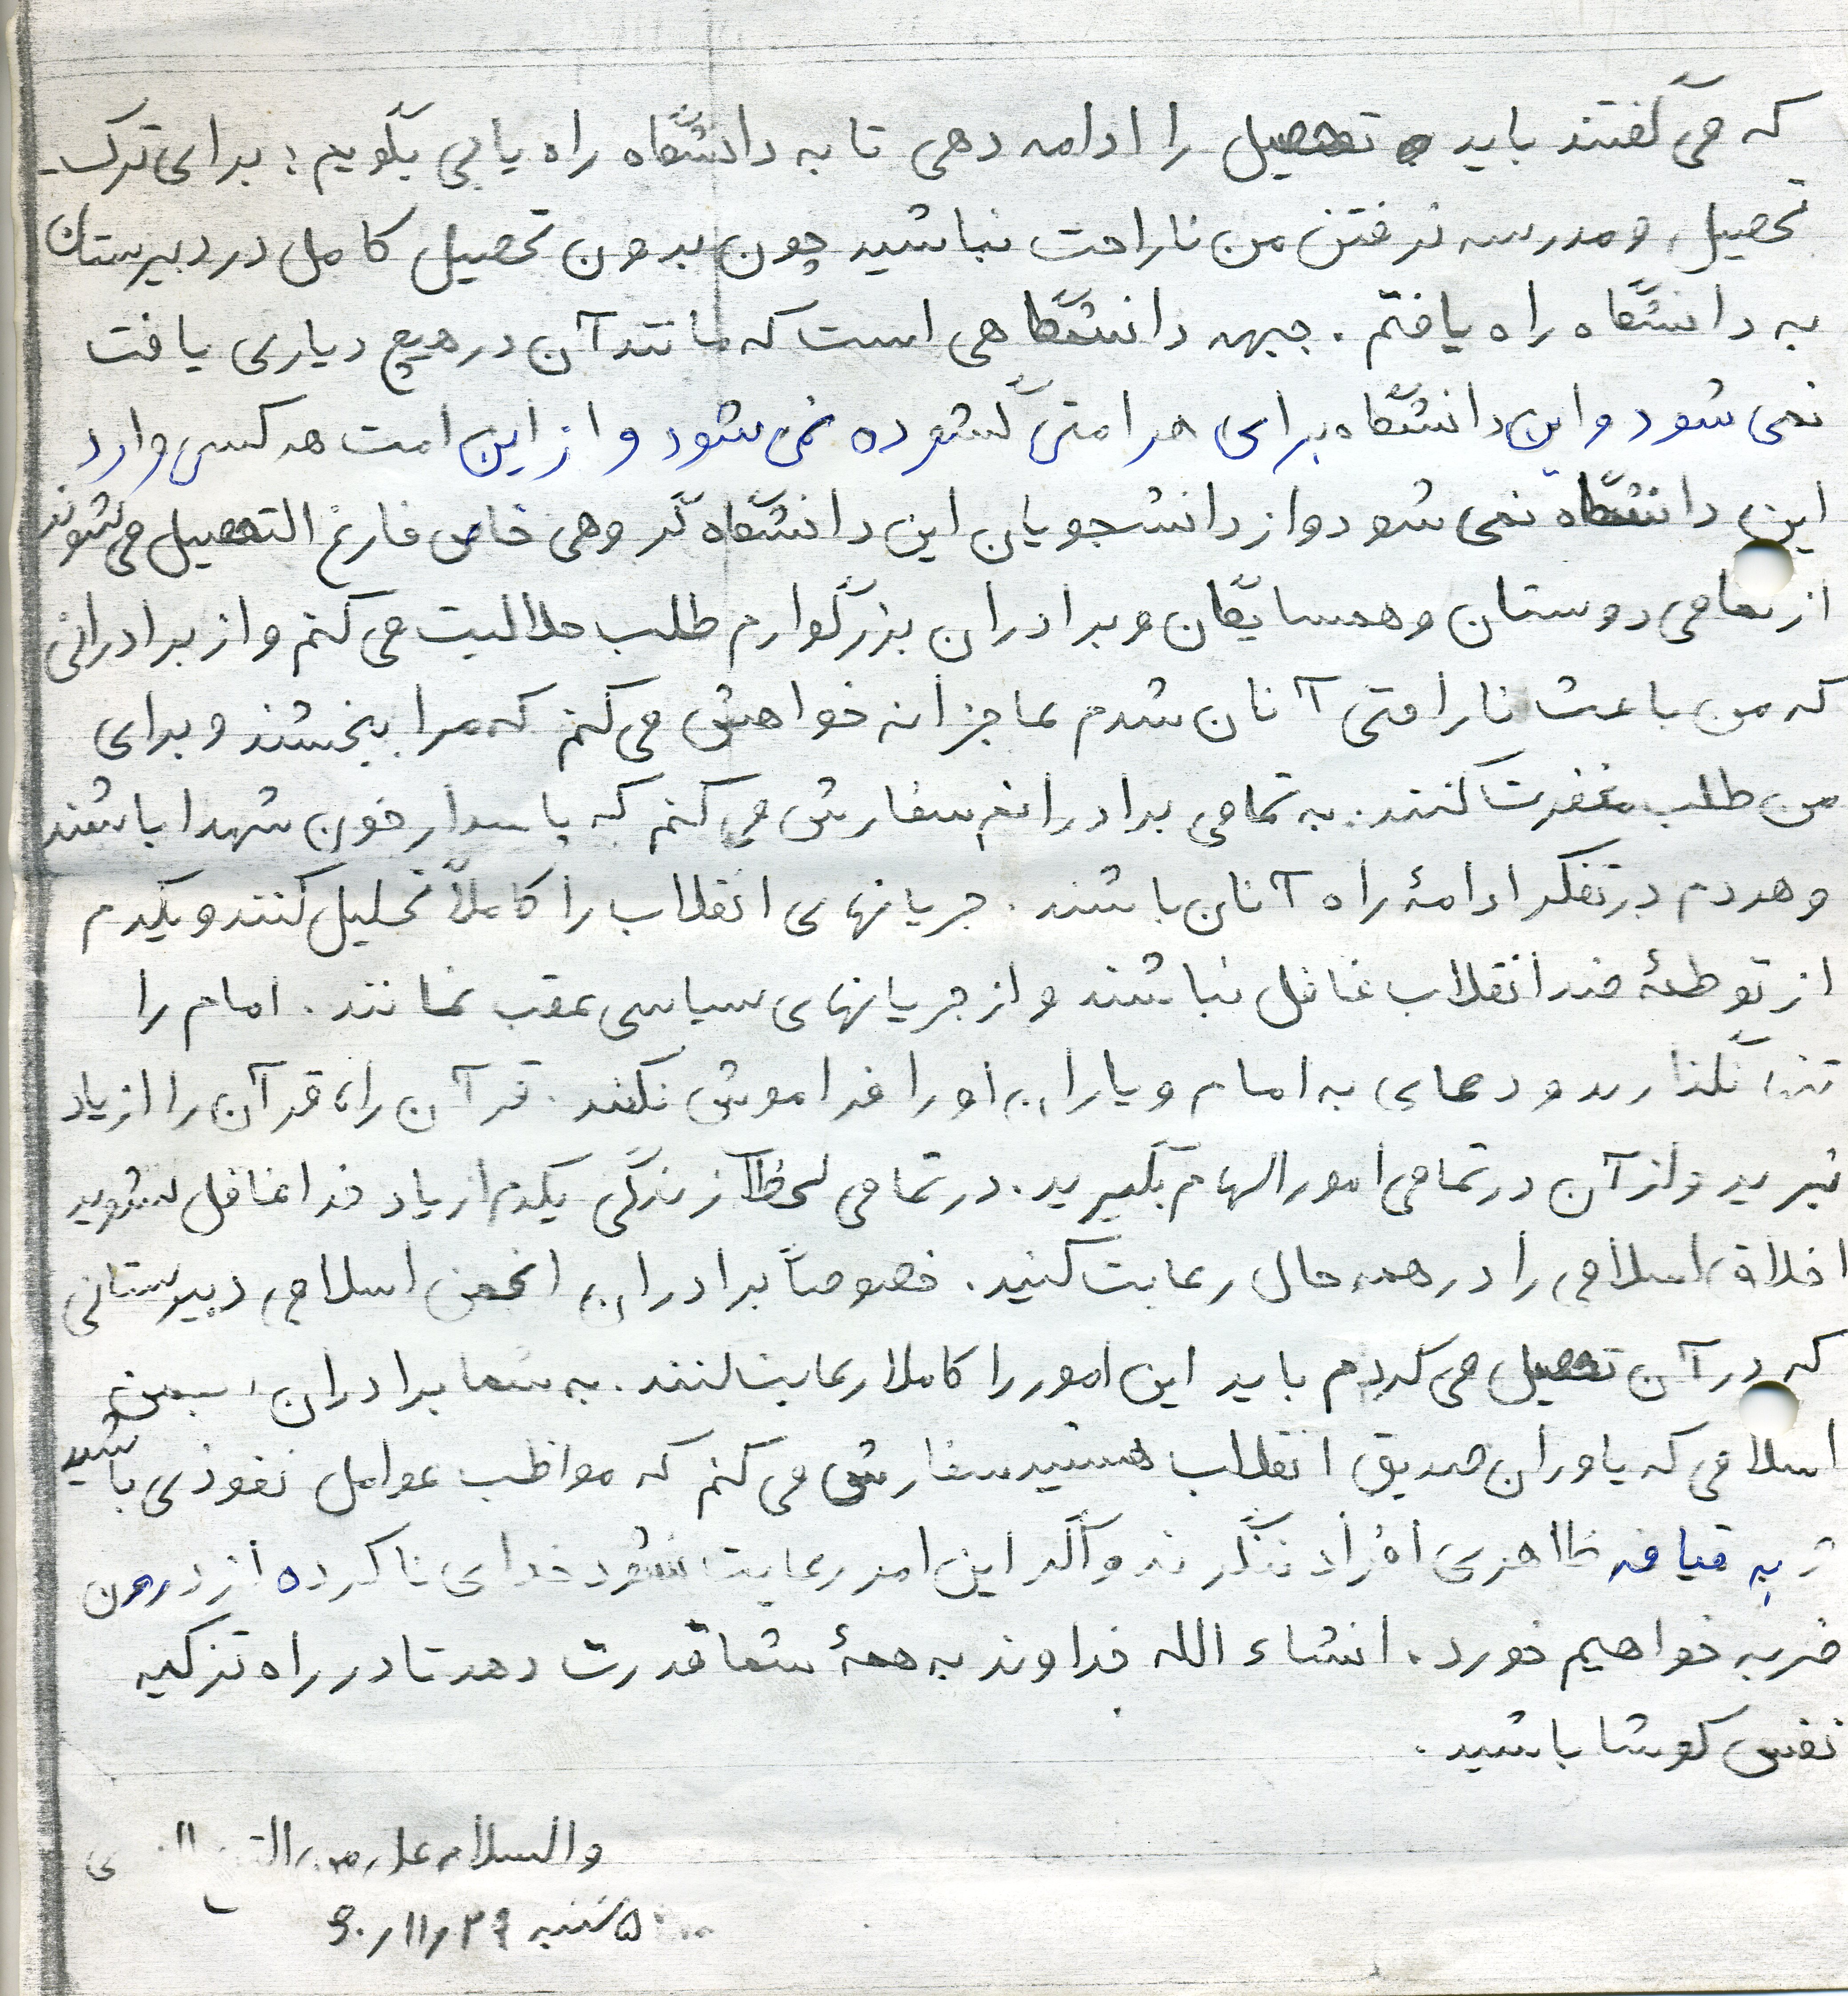 که می گفتند باید تحصیل را ادامه دهی تا به دانشگاه راه یابی بگویم : برای ترک
تحصیل و مدرسه نرفتن من ناراحت نباشید چون بدون تحصیل کامل در دبیرستان
به دانشگاه راه یافتم . جبهه دانشگاهی است که مانند آن در هیچ دیاری یافت
نمی شود و این دانشگاه برای هر امتی گشوده نمی شود و از این امت هر کسی وارد
این دانشگاه نمی شود و از دانشجویان این دانشگاه گروهی خاص فارغ التحصیل می شوند
از تمامی دوستان و همسایگان و برادران بزرگوارم طلب حلالیت می کنم و از برادرانی
که من باعث ناراحتی آنان شدم عاجزانه خواهش می کنم که مرا ببخشند و برای
من طلب مغفرت کنند . به تمامی برادرانم سفارش می کنم که پاسدار خون شهدا باشند
و هر دم در تفکر ادامۀ راه آنان باشند . جریانهای انقلاب را کاملاً تحلیل کنند و یکدم
از توطئۀ ضد انقلاب غافل نباشند و از جریانهای سیاسی عقب نمانند . امام را
تنها نگذارید و دعای به امام و یاران او را فراموش نکنند . قرآن را، قرآن را از یاد
نبرید و از آن در تمامی امور الهام بگیرید . در تمامی لحظآ زندگی یکدم از یاد خدا غافل نشوید
اخلاق اسلامی را در همه حال رعایت کنید . خصوصاً برادران انجمن اسلامی دبیرستانی
که در آن تحصیل می کردم باید این امور را کاملا رعایت کنند . به شما برادران
اسلامی که یاوران صدیق انقلاب هستید سفارش می کنم که مواظب عوامل نفوذی باشید
به قیافه ظاهری افراد ننگرند و اگر این امر رعایت نشود خدای ناکرده از درون
ضربه خواهیم خورد . انشاء الله خداوند به همۀ شما قدرت دهد تا در راه تزکیه
نفس کوشا باشید .
والسلام علی من
۵ شنبه ۲۹ ر ۱۱ ر ۶۰